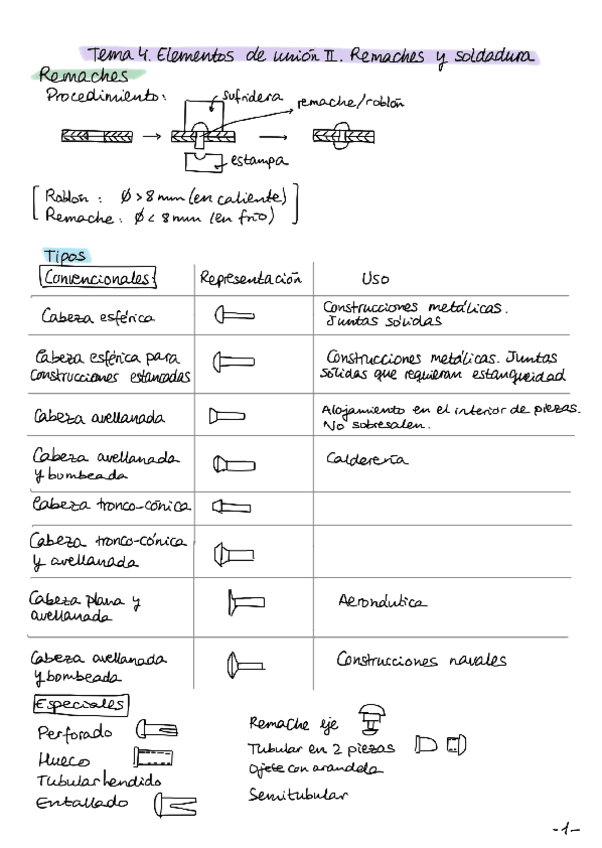 Tema 4. Elementos de unión II. Remaches y soldadura
Remaches
Procedimiento:
sufridera
remache/roblón
estampa
Roblón: Ø > 8 mm (en caliente)
Remache: Ø < 8 mm (en frío)
Tipos
Convencionales: Representación Uso
Cabeza esférica Construcciones metálicas. Juntas sólidas
Cabeza esférica para construcciones estancadas Construcciones metálicas. Juntas sólidas que requieran estanqueidad
Cabeza avellanada Alojamiento en el interior de piezas. No sobresalen.
Cabeza avellanada y bombeada Calderería
Cabeza tronco-cónica
Cabeza tronco-cónica y avellanada
Cabeza plana y avellanada Aeronáutica
Cabeza avellanada y bombeada Construcciones navales
Especiales
Perforado
Hueco
Tubular hendido
Entallado
Remache eje
Tubular en 2 piezas
Ojete con arandela
Semitubular
-1-